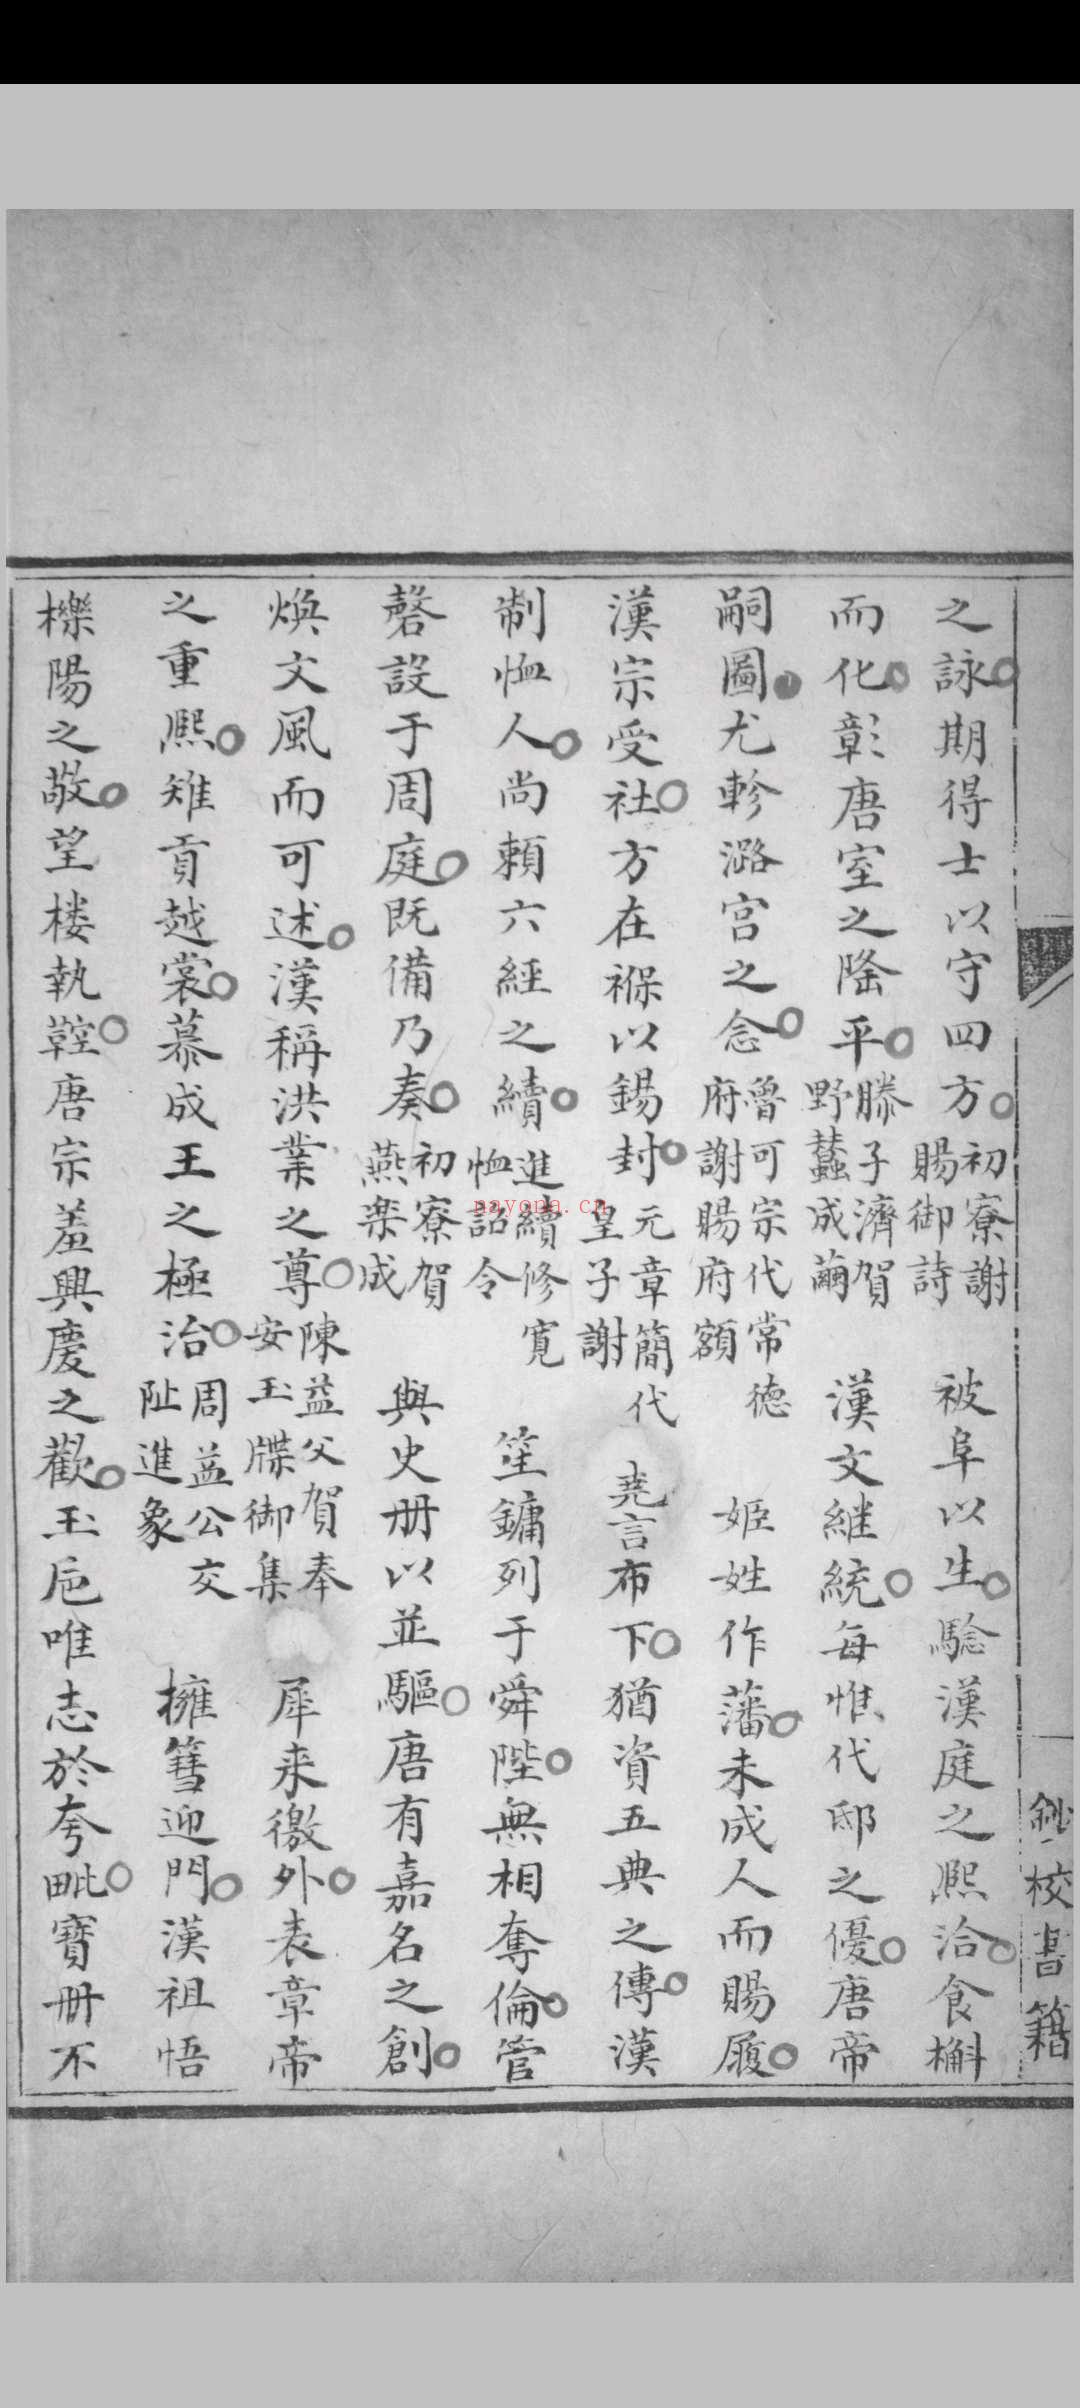 鈔校書籍
之詠期得士以守四方初寮謝賜御詩被阜以生驗漢庭之熙洽食槲
而化彰唐室之隆平滕子濟賀野蠶成繭漢文継統每惟代邸之優唐帝
嗣圖尤軫潞宫之念魯可宗代常德府謝賜府額姬姓作藩未成人而賜履
漢宗受社方在褓以錫封元章簡代皇子謝堯言布下猶資五典之傳漢
制恤人尚頼六經之續進續修寬恤詔令笙鏞列于舜陛無相奪倫管
磬設于周庭既備乃奏初寮賀燕楽成與史册以並驅唐有嘉名之創
煥文風而可述漢稱洪業之尊陳益父賀奉安玉牒御集犀来徼外表章帝
之重熈雉貢越裳慕成王之極治周益公交阯進象擁篲迎門漢祖悟
櫟陽之敬望楼執鞚唐宗羞興慶之歡玉卮唯志於夸毗寶册不
nayona.cn